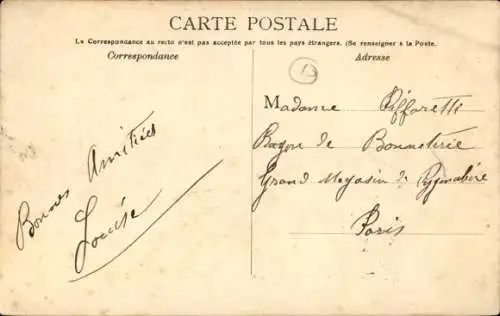 CARTE POSTALE
La Correspondance au recto n'est pas acceptée par tous les pays étrangers. (Se renseigner à la Poste.
Correspondance
Adresse
Bonnes Amitiés
Louise
Madame
Rayon de Bonneterie
Grand Magasin de
Paris